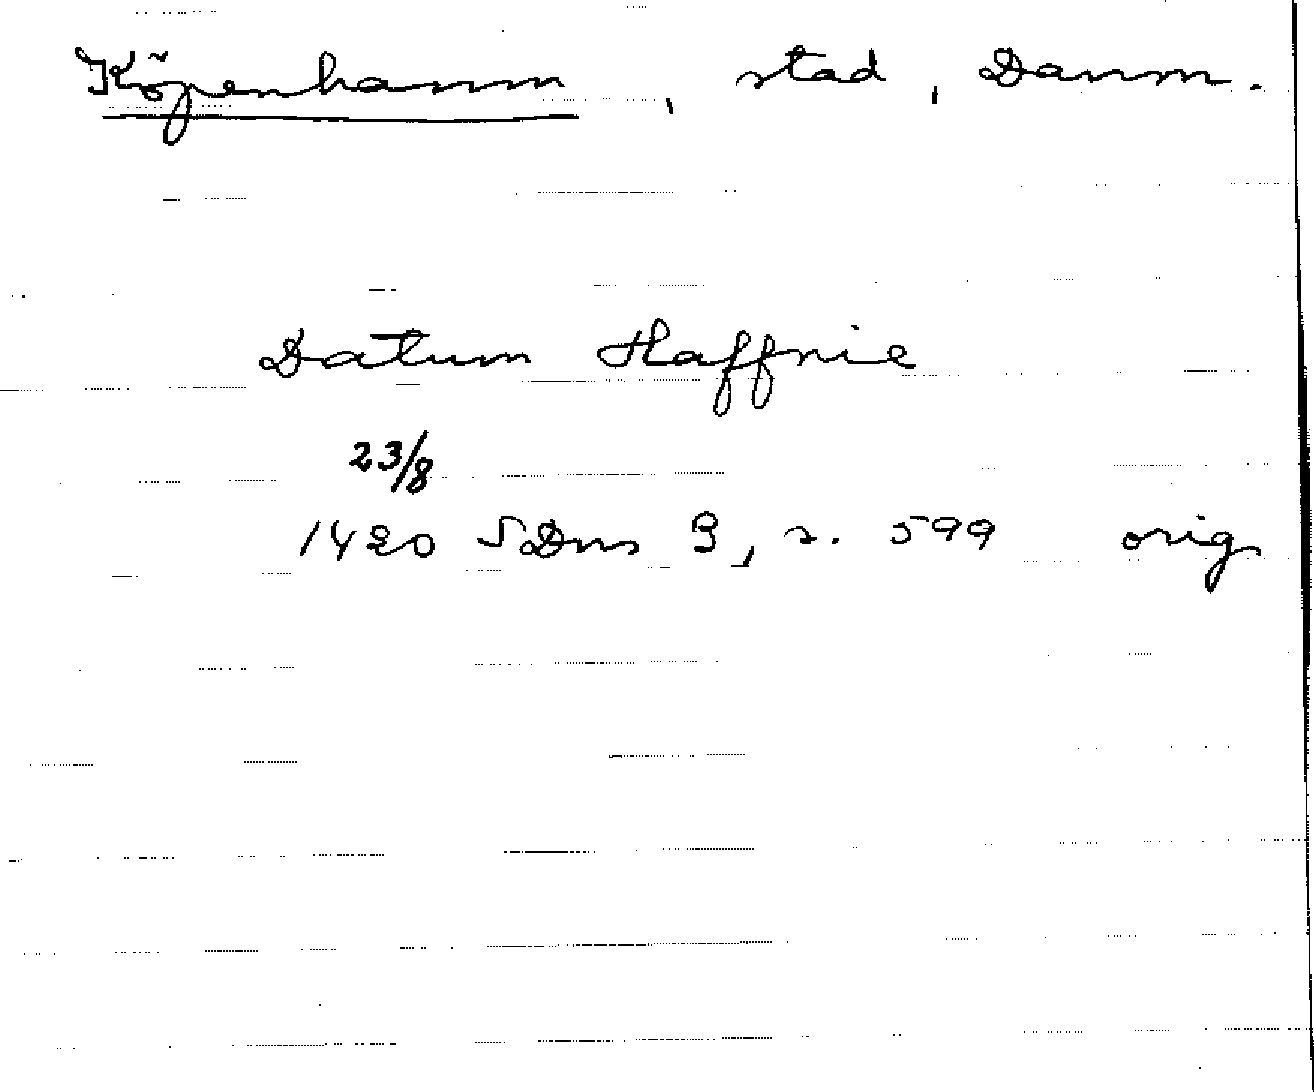 Köpenhamn, stad, Danm.
Datum Haffnie
23/8
1420 SDns 3, s. 599 orig